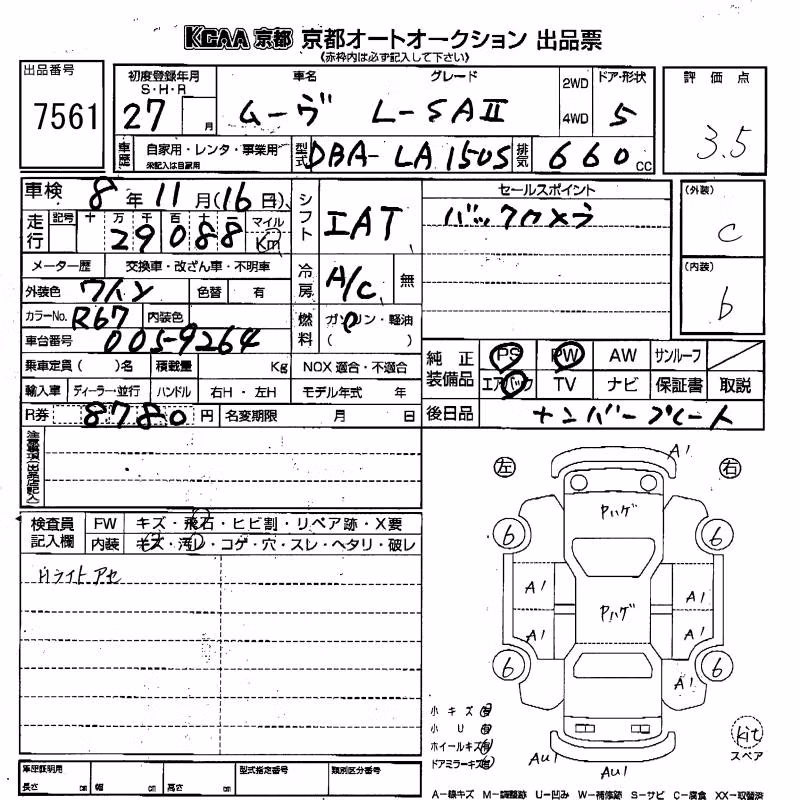 KCAA 京都 京都オートオークション 出品票
(赤枠内は必ず記入して下さい)
出品番号 7561
初度登録年月 S・H・R 27 月
車名 ムーヴ
グレード L-SAⅡ
2WD 4WD
ドア・形状 5
評価点 3.5
車歴 自家用・レンタ・事業用 未記入は自家用
型式 DBA-LA150S
排気 660 CC
車検 8年11月(16日)
走行 記号 十 万 千 百 十 一 29088 マイル Km
シフト IAT
セールスポイント
バックカメラ
(外装) C
(内装) b
メーター歴 交換車・改ざん車・不明車
冷房 A/C 無
外装色 ワイン 色替 有
カラーNo. R67 内装色
燃料 ガソリン・軽油 ( )
車台番号 005-9264
乗車定員( )名 積載量 Kg NOX 適合・不適合
輸入車 ディーラー・並行 ハンドル 右H・左H モデル年式 年
R券 8780 円 名変期限 月 日
純正装備品 PS PW AW サンルーフ
エアバック TV ナビ 保証書 取説
後日品 ナンバープレート
注意事項(出品店記入)
検査員記入欄 FW キズ・飛石・ヒビ割・リペア跡・X要
内装 キズ・汚レ・コゲ・穴・スレ・ヘタリ・破レ
Hライトアセ
左 右
A1
Pハゲ
6 6
A1 A1
Pハゲ
A1 A1
6 6
A1
小キズ有
小U有
ホイールキズ有
ドアミラーキズ有
AU1
AU1
kit
スペア
車庫証明用 長さ cm 幅 cm 高さ cm
型式指定番号
類別区分番号
A-線キズ M-調整跡 U-凹み W-補修跡 S-サビ C-腐食 XX-取替済